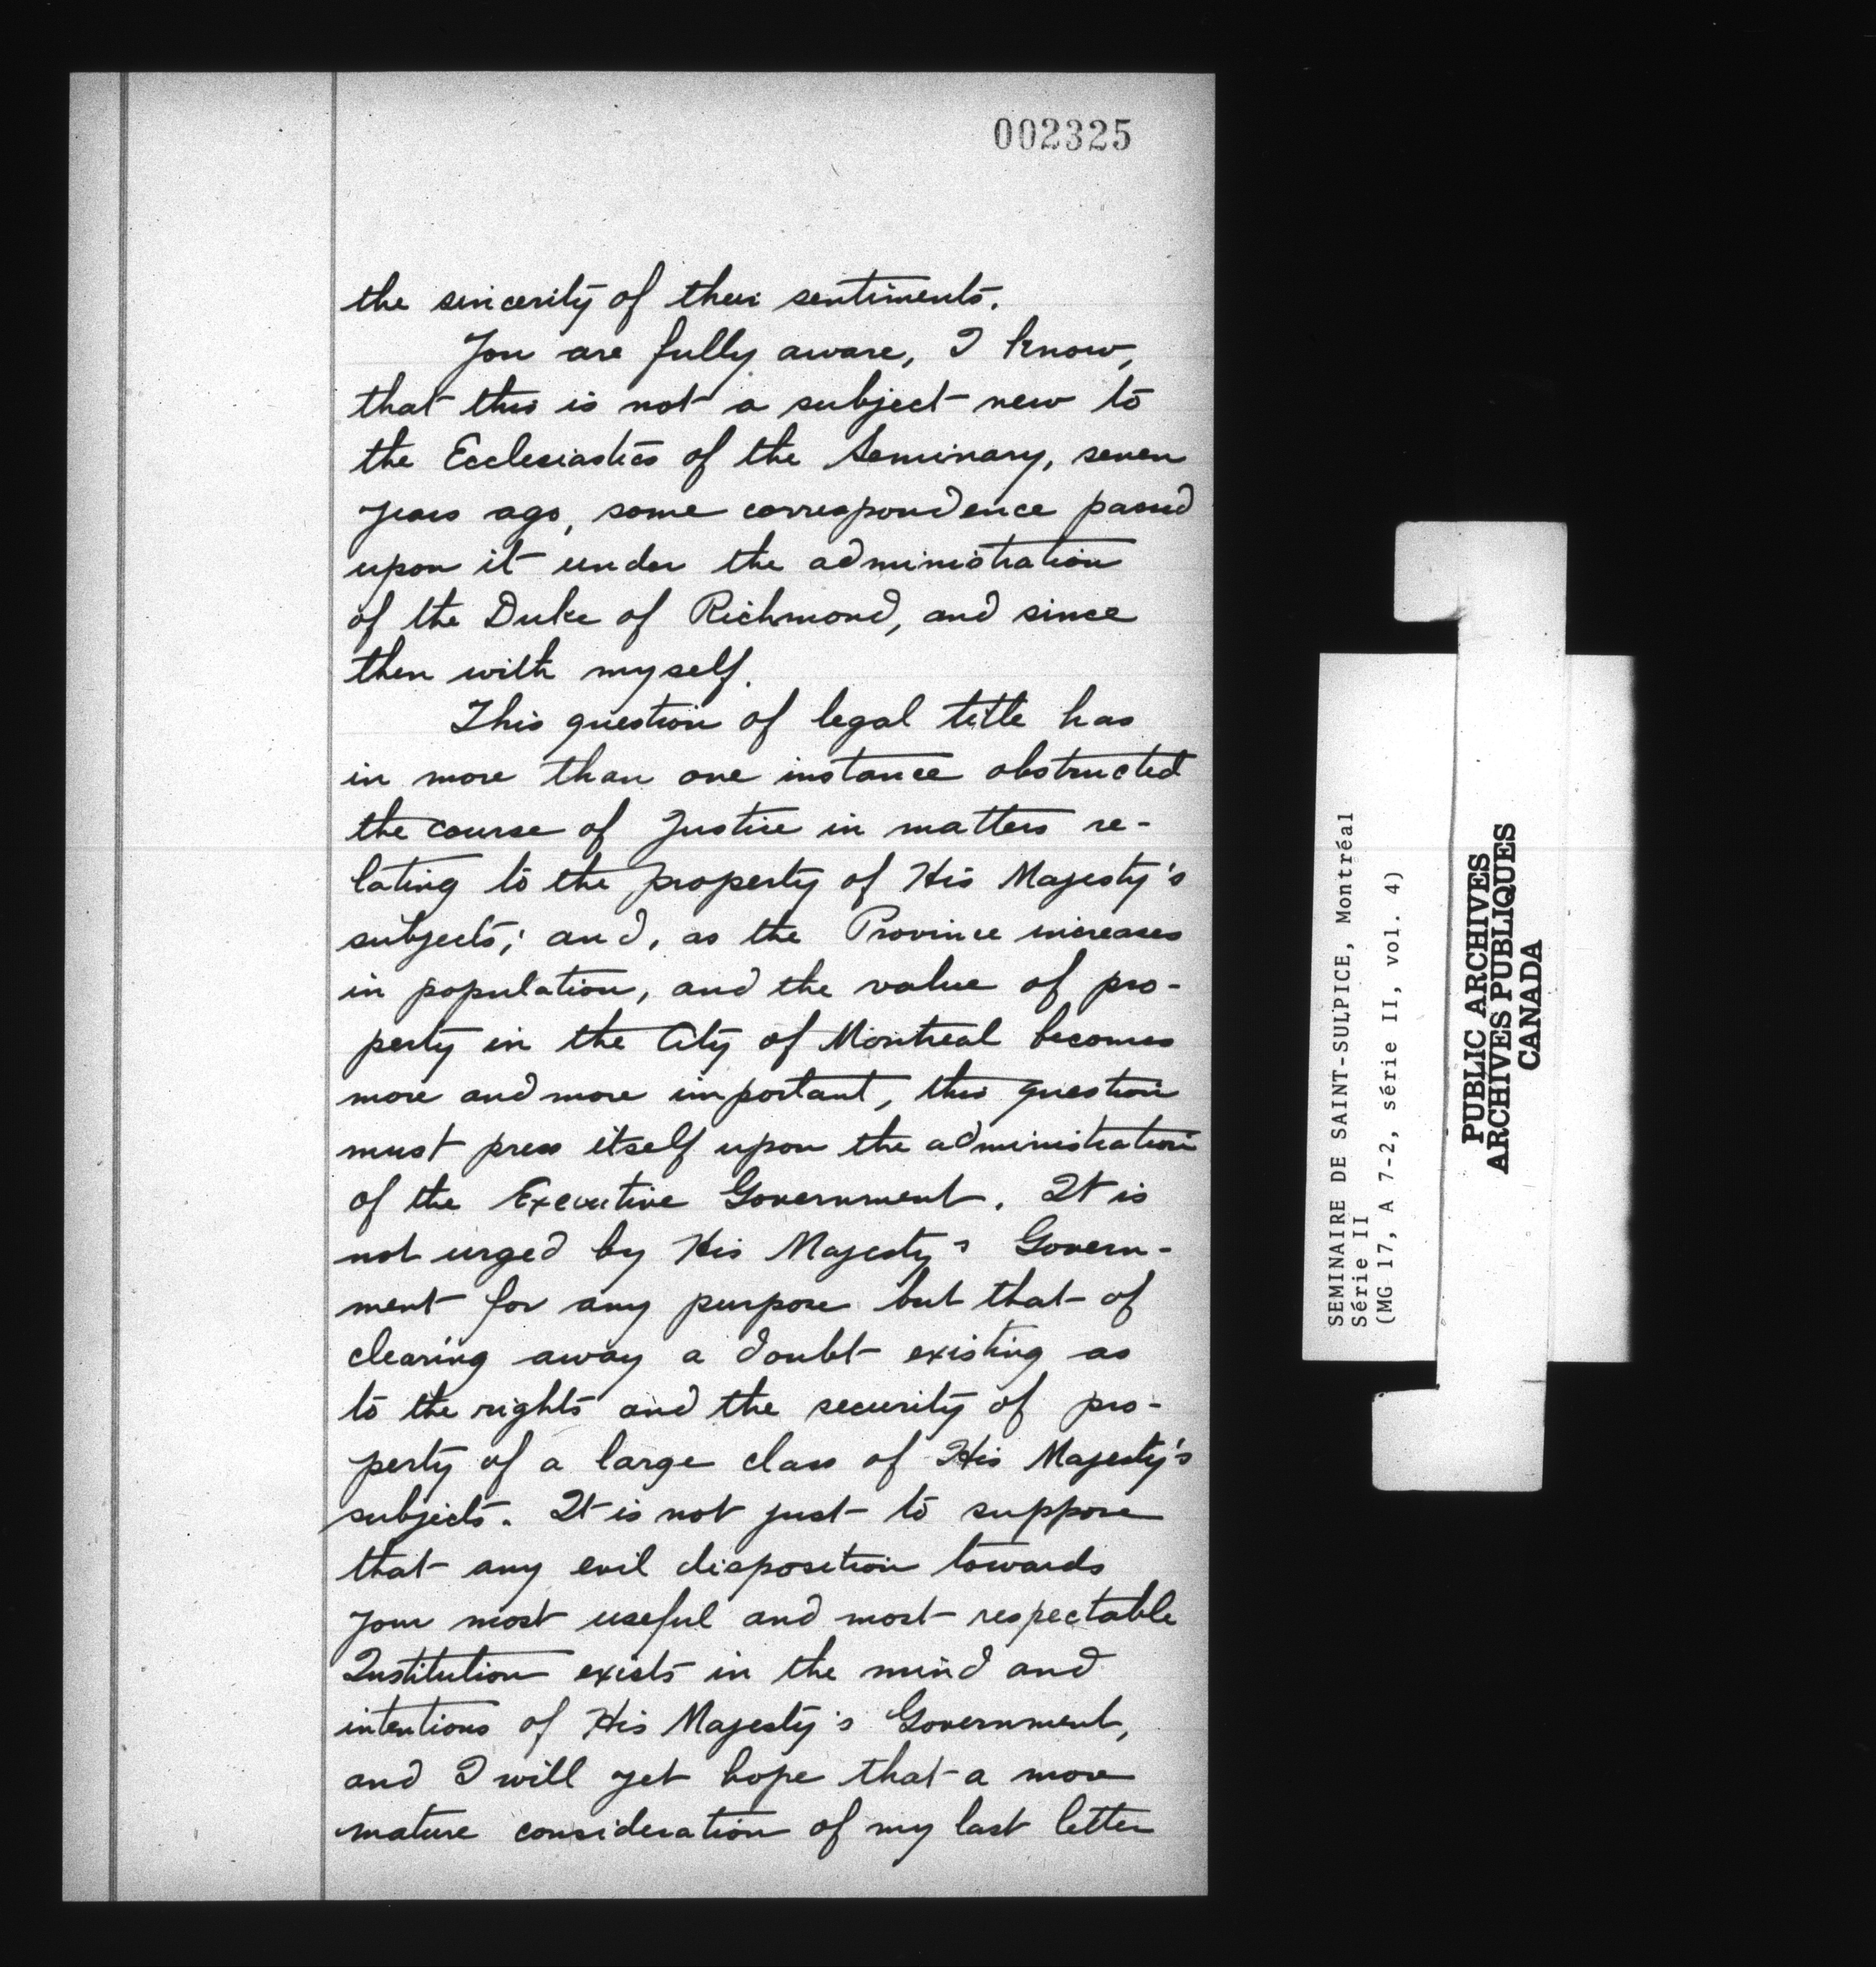 002325
the sincerity of their sentiments.
You are fully aware, I know,
that this is not a subject new to
the Ecclesiastics of the Seminary, seven
years ago, some correspondence passed
upon it under the administration
of the Duke of Richmond, and since
then with myself.
This question of legal title has
in more than one instance obstructed
the course of Justice in matters re-
lating to the property of His Majesty's
subjects; and, as the Province increases
in population, and the value of pro-
perty in the City of Montreal becomes
more and more important, this question
must press itself upon the administration
of the Executive Government. It is
not urged by His Majesty's Govern-
ment for any purpose but that of
clearing away a doubt existing as
to the rights and the security of pro-
perty of a large class of His Majesty's
subjects. It is not just to suppose
that any evil disposition towards
your most useful and most respectable
Institution exists in the mind and
intentions of His Majesty's Government,
and I will yet hope that a more
mature consideration of my last letter
SEMINAIRE DE SAINT-SULPICE, Montréal
Série II
(MG 17, A 7-2, série II, vol. 4)
PUBLIC ARCHIVES
ARCHIVES PUBLIQUES
CANADA